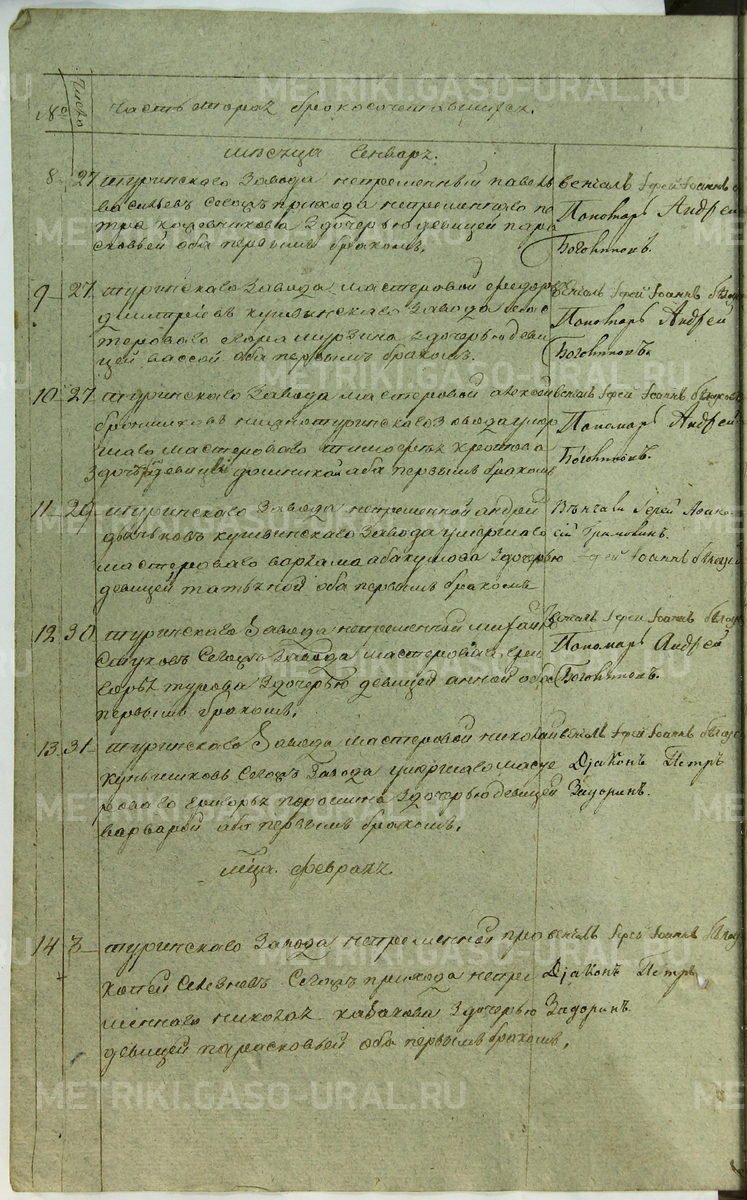 № Число Часть вторая бракосочетавшихся.
месяца Генваря.
8 27 туринскаго завода непременный павелъ
васильевъ сегожъ прихода непременнаго пе
тра кожевникова з дочерью девицей пара
сковьей оба первымъ бракомъ.
венчалъ Іерей Іоаннъ
Пономарь Андрей
Боголеповъ.
9 27 туринскаго завода мастеровой федоръ
димитреевъ кушвинскаго завода мас
тероваго з дочерью деви
цей вассой оба первымъ бракомъ.
венчалъ Іерей Іоаннъ
Пономарь Андрей
10 27 туринскаго завода мастеровой алексей
бронниковъ нижнетуринскаго завода умер
шаго мастероваго тимофея хрептова
з дочерью девицей домникой оба первымъ бракомъ
венчалъ Іерей Іоаннъ
Пономарь Андрей
11 29 туринскаго завода непременной андрей
дьяковъ кушвинскаго завода умершаго
мастероваго варлама абакумова з дочерью
девицей татьяной оба первымъ бракомъ
Венчали Іерей
Іерей Іоаннъ
12 30 туринскаго завода непременной михайло
стуковъ сегожъ завода мастероваго гри
горья турова з дочерью девицей анной оба
первымъ бракомъ.
венчалъ Іерей Іоаннъ
Пономарь Андрей
13 31 туринскаго завода мастеровой николай
кунщиковъ сегожъ завода умершаго масте
роваго григорья порошина з дочерью девицей
варварой оба первымъ бракомъ.
венчалъ Іерей Іоаннъ
Діаконъ Петръ
Задоринъ.
м̃ца. февраля.
14 3 туринскаго завода непременной про
копей селезневъ сегожъ прихода непре
меннаго николая казакова з дочерью
девицей парасковьей оба первымъ бракомъ.
венчалъ Іерей Іоаннъ
Діаконъ Петръ
Задоринъ.
METRIKI.GASO-URAL.RU